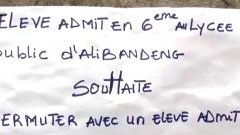 ELEVE ADMIT EN 6eme AU LYCEE
PUBLIC d'ALIBANDENG
SOUHAITE
PERMUTER AVEC UN ELEVE ADMIT